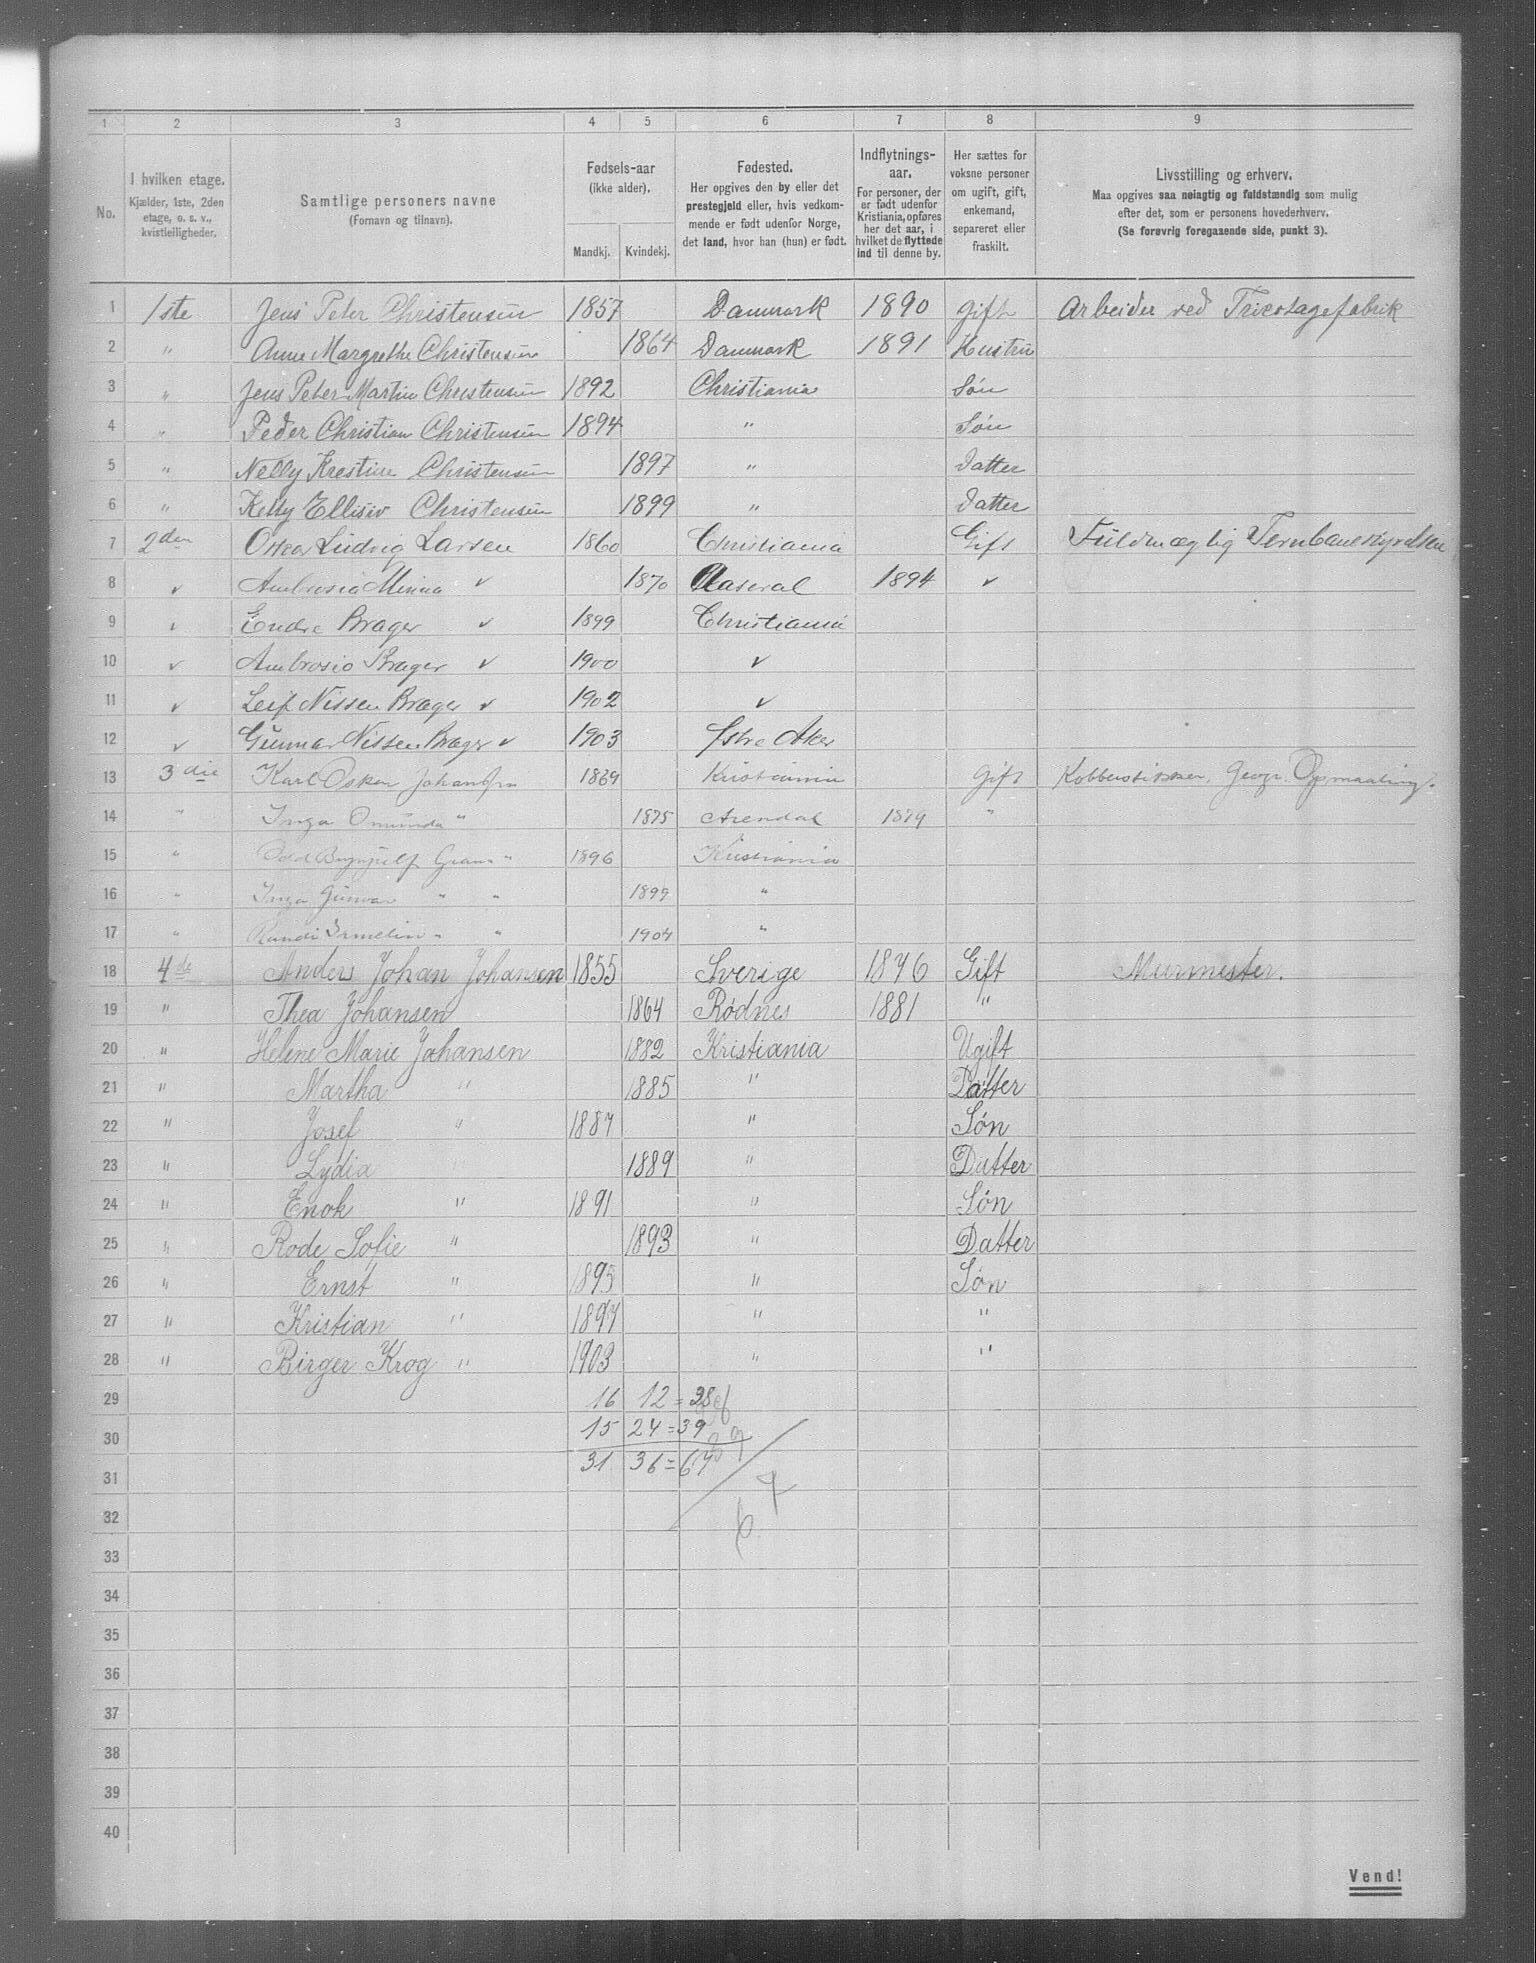 1 2 3 4 5 6 7 8 9
No. I hvilken etage. Kjælder, 1ste, 2den etage, o. s. v., kvistleiligheder. Samtlige personers navne (Fornavn og tilnavn). Fødsels-aar (ikke alder). Mandkj. Kvindekj. Fødested. Her opgives den by eller det prestegjeld eller, hvis vedkommende er født udenfor Norge, det land, hvor han (hun) er født. Indflytningsaar. For personer, der er født udenfor Kristiania, opføres her det aar, i hvilket de flyttede ind til denne by. Her sættes for voksne personer om ugift, gift, enkemand, separeret eller fraskilt. Livsstilling og erhverv. Maa opgives saa nøiagtig og fuldstændig som mulig efter det, som er personens hovederhverv. (Se forøvrig foregaaende side, punkt 3).
1 1ste Jens Peter Christensen 1857 Danmark 1890 Gift Arbeider ved Tricotagefabrik
2 " Anne Margrethe Christensen 1864 Danmark 1891 Hustru
3 " Jens Peter Martin Christensen 1892 Christiania Søn
4 " Peder Christian Christensen 1894 " Søn
5 " Nelly Krestine Christensen 1897 " Datter
6 " Ketty Ellisiv Christensen 1899 " Datter
7 2den Oskar Ludvig Larsen 1860 Christiania Gift Fuldmægtig Jernbanestyrelsen
8 " Ambrosia Minna " 1870 Aaseral 1894 "
9 " Endre Brager " 1899 Christiania
10 " Ambrosio Brager " 1900 "
11 " Leif Nissen Brager " 1902 "
12 " Gunnar Nissen Brager " 1903 Østre Aker
13 3die Karl Oskar Johansen Kristiania Gift Kobberstikker, Geogr. Opmaaling.
14 " Inga Omunda " 1875 Arendal 1879 "
15 " Odd Brynjulf Gram " 1896 Kristiania
16 " Inga Gunvor " " 1899 "
17 " Randi Irmelin " " 1904 "
18 4de Anders Johan Johansen 1855 Sverige 1876 Gift Murmester.
19 " Thea Johansen 1864 Rødnes 1881 "
20 " Helene Marie Johansen 1882 Kristiania Ugift
21 " Martha " 1885 " Datter
22 " Josef " 1887 " Søn
23 " Lydia " 1889 " Datter
24 " Enok " 1891 " Søn
25 " Rode Sofie " 1893 " Datter
26 " Ernst " 1895 " Søn
27 " Kristian " 1897 " "
28 " Birger Krog " 1903 " "
29 16 12 = 28
30 15 24 = 39
31 31 36 = 67
32
33
34
35
36
37
38
39
40
Vend!